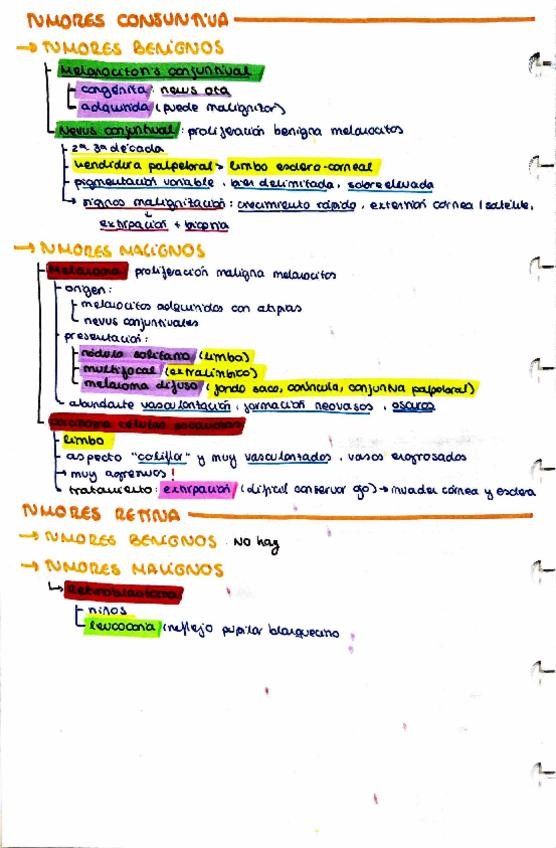 TUMORES CONJUNTIVA
→ TUMORES BENIGNOS
Melanocitosis conjuntival
congénita: nevus ota
adquirida (puede malignizar)
Nevus conjuntival: proliferación benigna melanocitos
2ª 3ª década
hendidura palpebral > limbo esclero-corneal
pigmentación variable, bien delimitada, sobreelevada
signos malignización: crecimiento rápido, extensión córnea / satélite,
extirpación + biopsia
→ TUMORES MALIGNOS
Melanoma proliferación maligna melanocitos
origen:
melanocitos adquiridos con atipias
nevus conjuntivales
presentación:
nódulo solitario (limbo)
multifocal (extralímbico)
melanoma difuso (fondo saco, carúncula, conjuntiva palpebral)
abundante vascularización, formación neovasos, oscuros
carcinoma células escamosas
limbo
aspecto "coliflor" y muy vascularizados, vasos engrosados
→ muy agresivos!
tratamiento: extirpación (difícil conservar ojo) → invaden córnea y esclera
TUMORES RETINA
→ TUMORES BENIGNOS: No hay
→ TUMORES MALIGNOS
↳ Retinoblastoma
niños
leucocoria (reflejo pupilar blanquecino